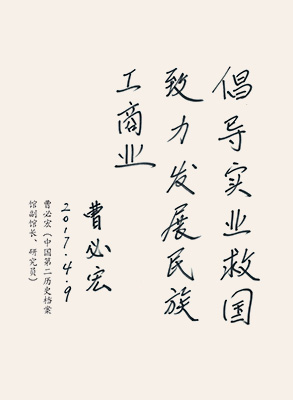 倡导实业救国
致力发展民族
工商业
曹必宏
2017.4.9
曹必宏（中国第二历史档案
馆副馆长、研究员）